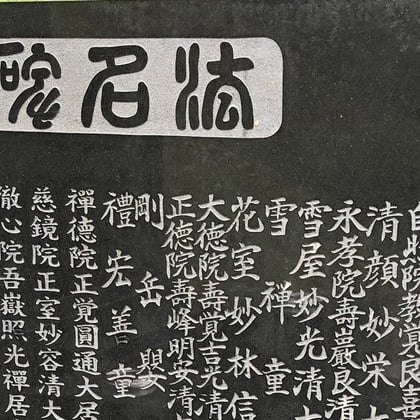 法名碗
自性院教覚良喜
清顔妙栄大
永孝院壽嚴良清
雪屋妙光清大
雪禅童
花室妙林信
大徳院壽覚吉光清
正徳院壽峰明安清
剛岳嬰
禮宏善童
禪德院正覚圓通大居
慈鏡院正室妙容清大
徹心院吾嶽照光禪居